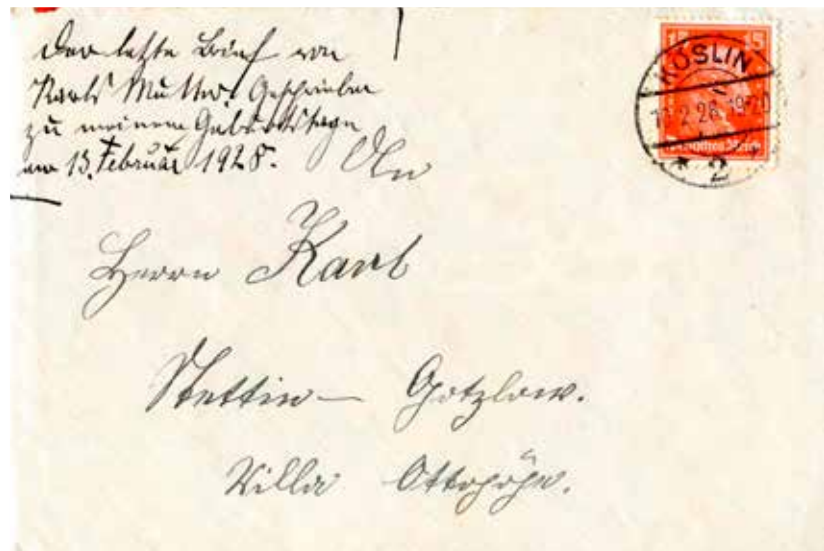 Der letzte Brief von
Karls Mutter. Geschrieben
zu meinem Geburtstage
am 13. Februar 1928.
An
Herrn Karl
Stettin – Gotzlow.
Villa Ottohöhe.
15
KÖSLIN
2.28.19-20
Deutsches Reich
* 2